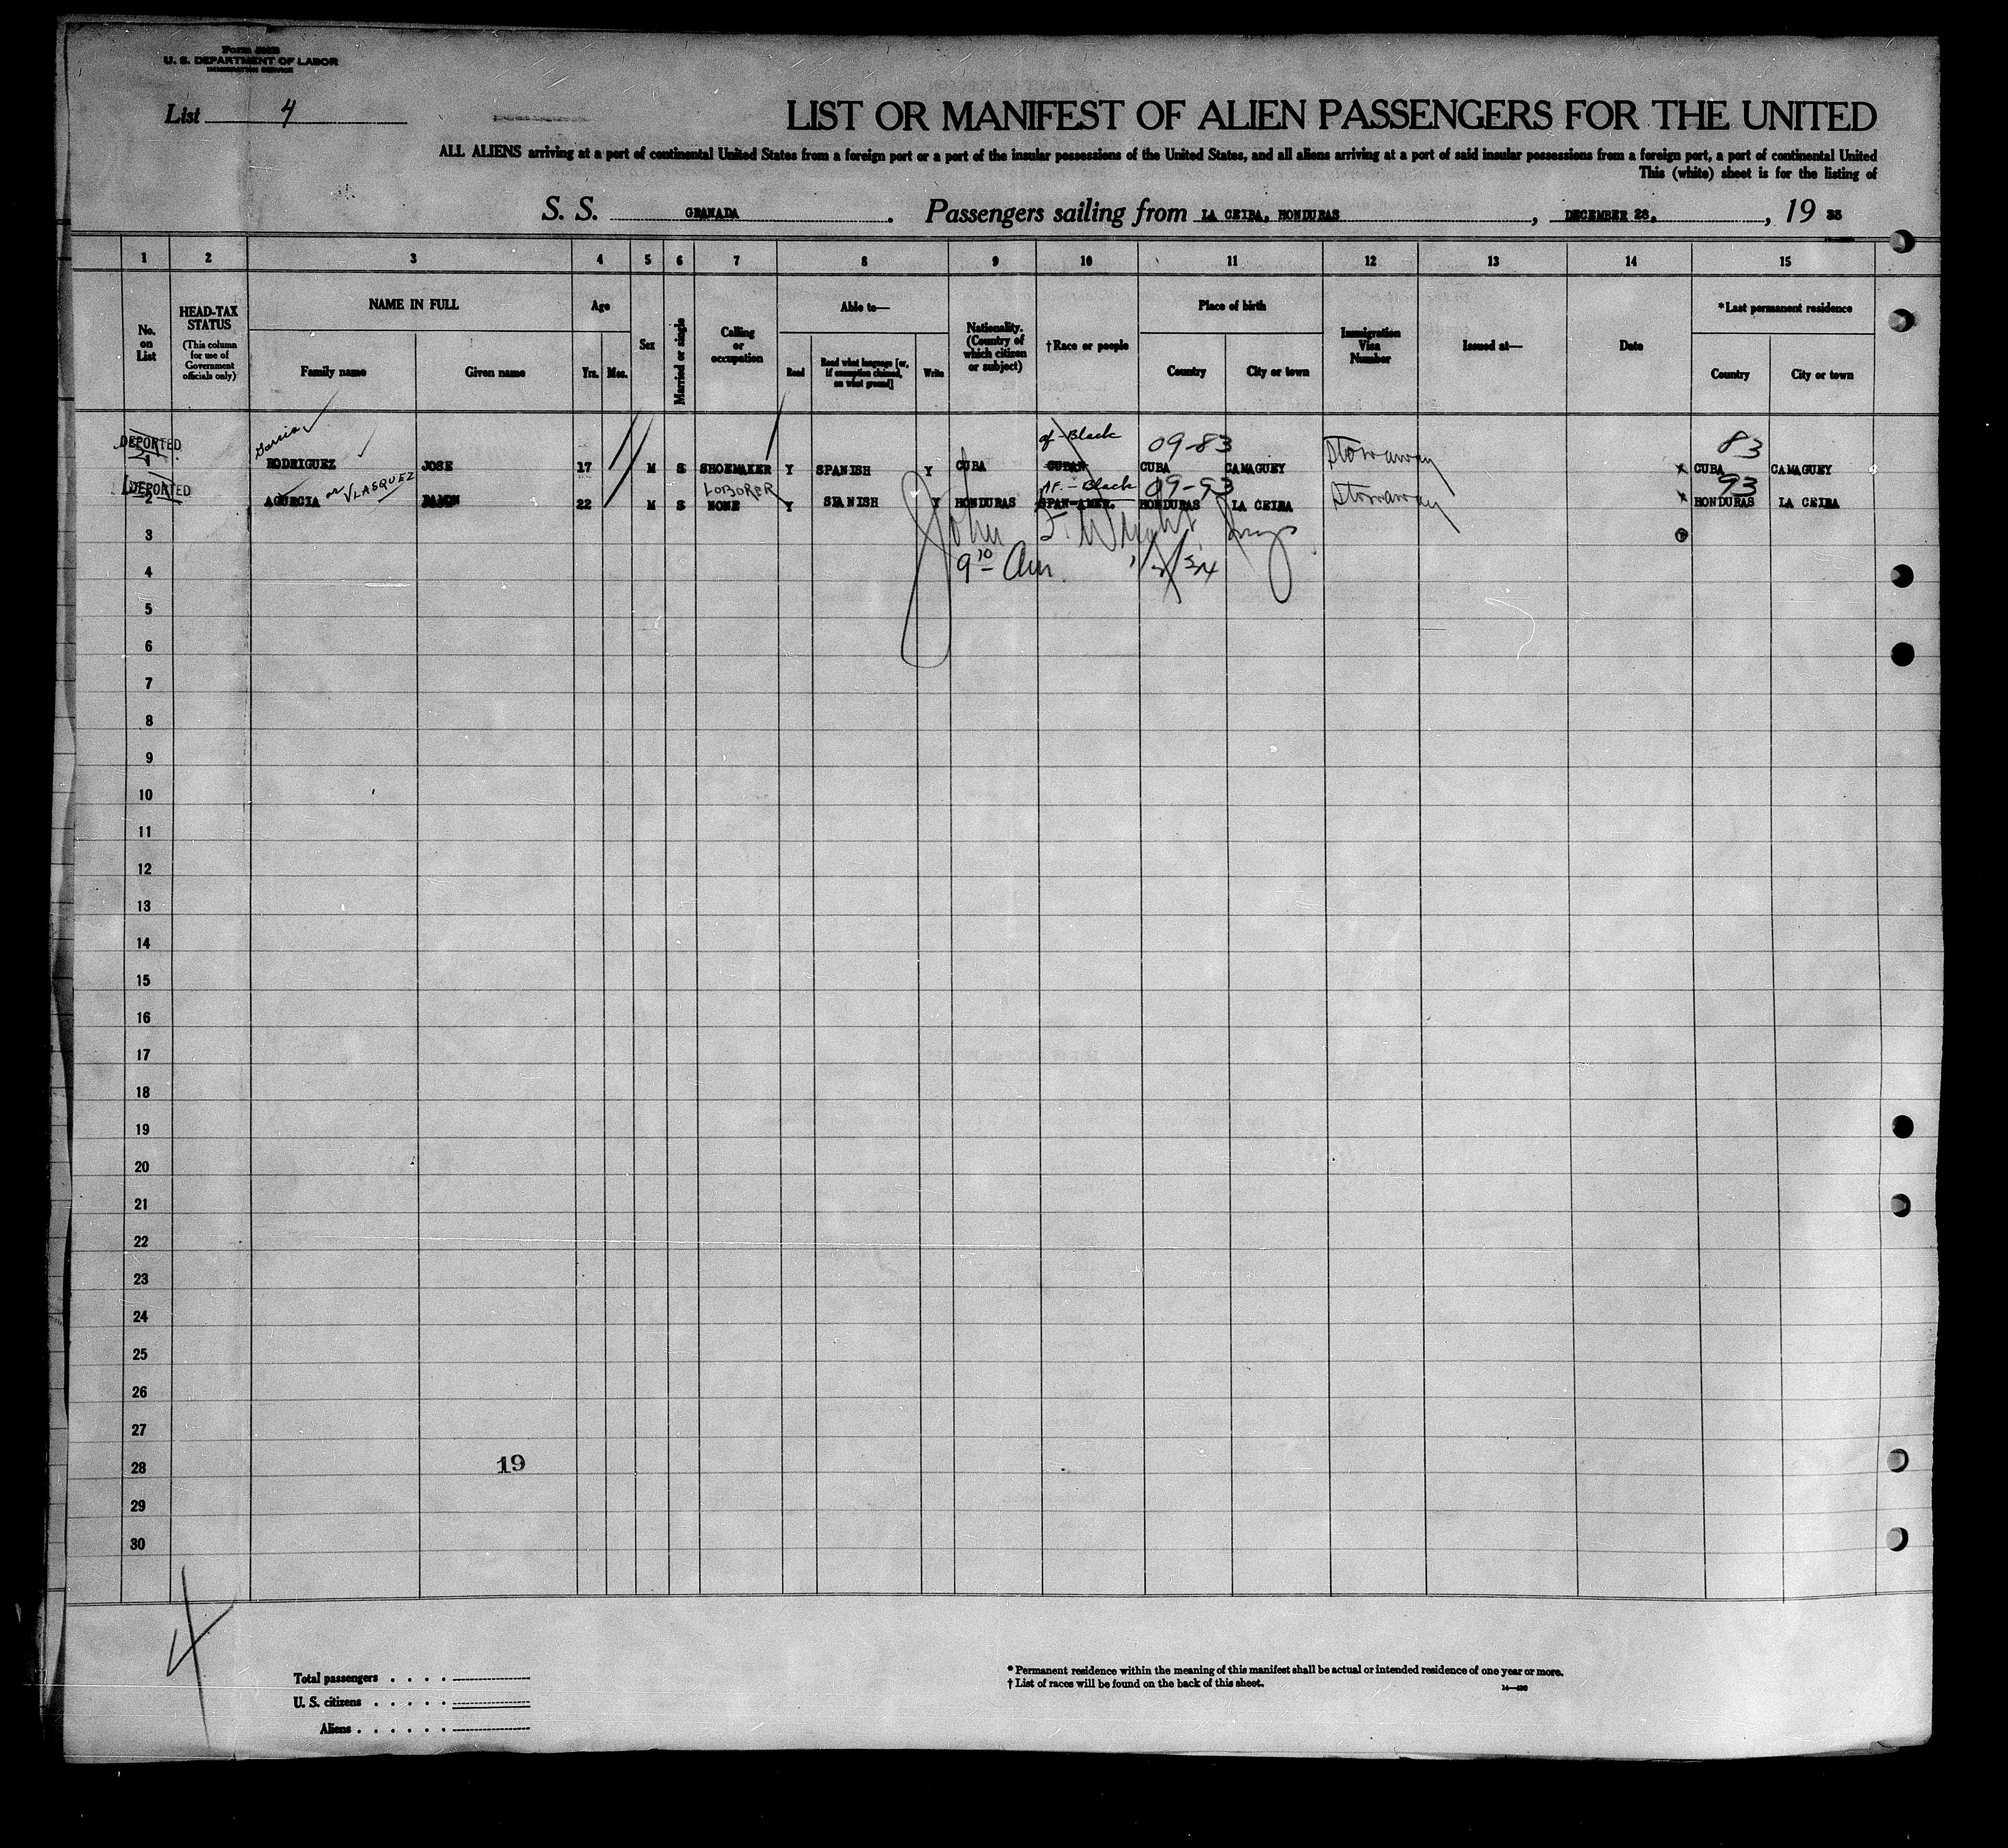 U. S. DEPARTMENT OF LABOR
IMMIGRATION SERVICE
List 4
LIST OR MANIFEST OF ALIEN PASSENGERS FOR THE UNITED
ALL ALIENS arriving at a port of continental United States from a foreign port or a port of the insular possessions of the United States, and all aliens arriving at a port of said insular possessions from a foreign port, a port of continental United
This (white) sheet is for the listing of
S. S. GRANADA . Passengers sailing from LA CEIBA, HONDURAS , DECEMBER 28, , 19 33
1 2 3 4 5 6 7 8 9 10 11 12 13 14 15
No. on List
HEAD-TAX STATUS
(This column for use of Government officials only)
NAME IN FULL
Family name Given name
Age
Yrs. Mos.
Sex
Married or single
Calling or occupation
Able to—
Read
Read what language [or, if exemption claimed, on what ground]
Write
Nationality. (Country of which citizen or subject)
†Race or people
Place of birth
Country City or town
Immigration Visa Number
Issued at—
Date
*Last permanent residence
Country City or town
Garcia af-Black 09-83 83
DEPORTED 1 RODRIGUEZ JOSE 17 M S SHOEMAKER Y SPANISH Y CUBA CUBAN CUBA CAMAGUEY Stowaway x CUBA CAMAGUEY
or VLASQUEZ LOBORER AF.-Black 09-93 93
DEPORTED 2 AGURCIA RAMON 22 M S NONE Y SPANISH Y HONDURAS SPAN-AMER. HONDURAS LA CEIBA Stowaway x HONDURAS LA CEIBA
3 John F. Wright
4 9 10 Am. 1/2/34
5
6
7
8
9
10
11
12
13
14
15
16
17
18
19
20
21
22
23
24
25
26
27
28 19
29
30
4
Total passengers . . . .
U. S. citizens . . . . .
Aliens . . . . . .
* Permanent residence within the meaning of this manifest shall be actual or intended residence of one year or more.
† List of races will be found on the back of this sheet.